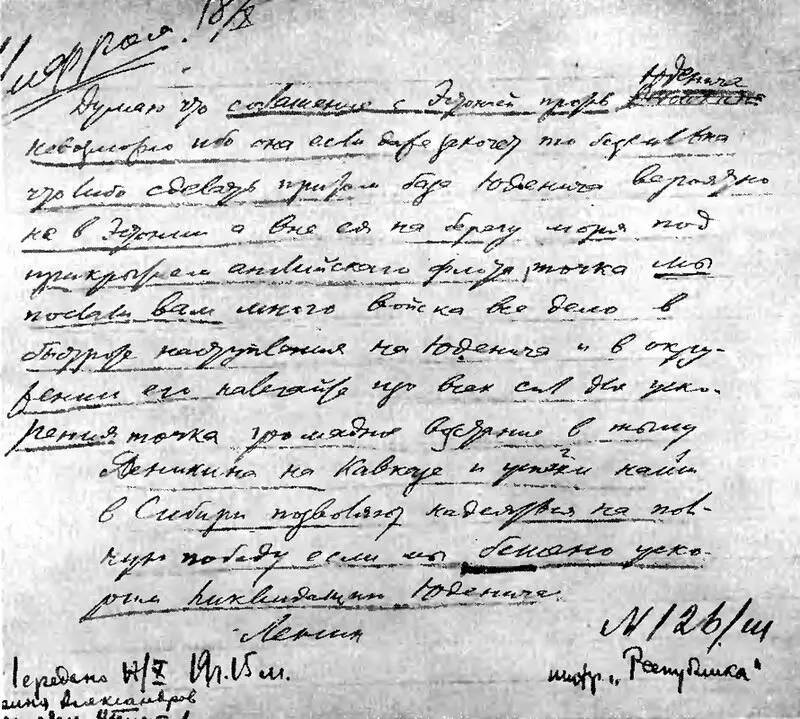 Шифром. 18/X
Юденича
Думаю что соглашение с Эстонией против
невозможно ибо она если даже захочет то бессильна
что либо сделать притом база Юденича вероятно
не в Эстонии а вне ея на берегу моря под
прикрытием английскаго флота точка мы
послали вам много войска все дело в
быстроте наступления на Юденича и в окру-
жении его налегайте изо всех сил для уско-
рения точка громадное восстание в тылу
Деникина на Кавказе и успехи наши
в Сибири позволяют надеяться на пол-
ную победу если мы бешено уско-
рим ликвидацию Юденича
Ленин
N 126/ш
Передано 18/X 19ч. 15м. шифр. „Республика"
Александров